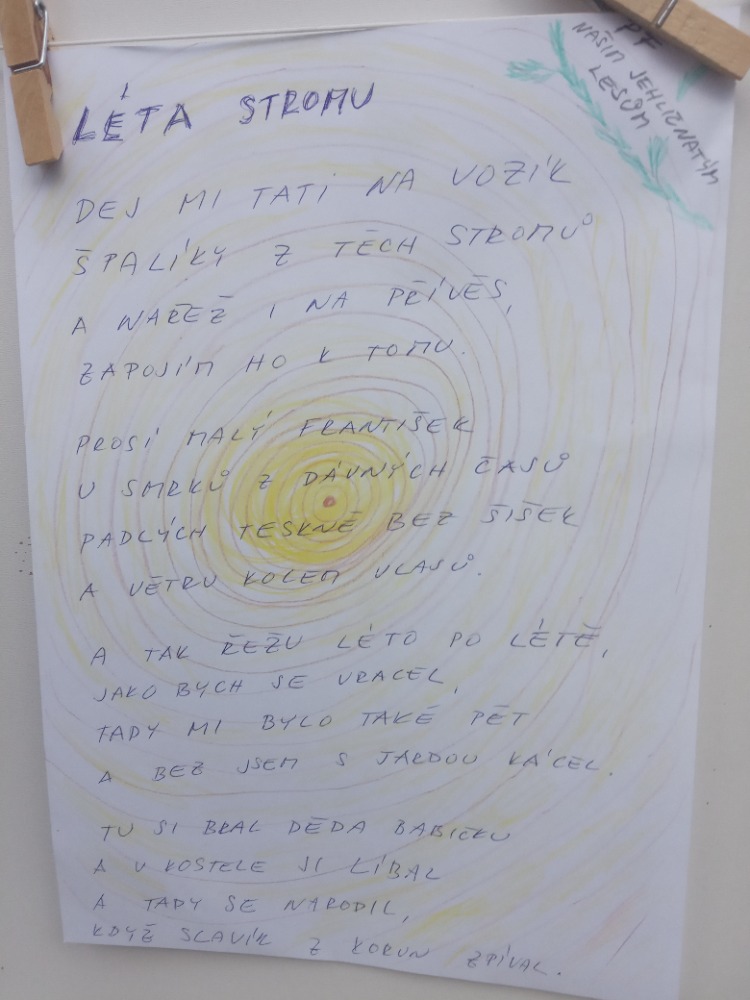 PF
NAŠIM JEHLIČNATÝM
LESŮM
LÉTA STROMU
DEJ MI TATI NA VOZÍK
ŠPALÍKY Z TĚCH STROMŮ
A NAŘEŽ I NA PŘÍVĚS,
ZAPOJÍM HO K TOMU.
PROSÍ MALÝ FRANTIŠEK
U SMRKŮ Z DÁVNÝCH ČASŮ
PADLÝCH TESKNĚ BEZ ŠIŠEK
A VĚTRU KOLEM VLASŮ.
A TAK ŘEŽU LÉTO PO LÉTĚ,
JAKO BYCH SE VRACEL,
TADY MI BYLO TAKÉ PĚT
A BEZ JSEM S JARDOU KÁCEL.
TU SI BRAL DĚDA BABIČKU
A V KOSTELE JI LÍBAL
A TADY SE NARODIL,
KDYŽ SLAVÍK Z KORUN ZPÍVAL.